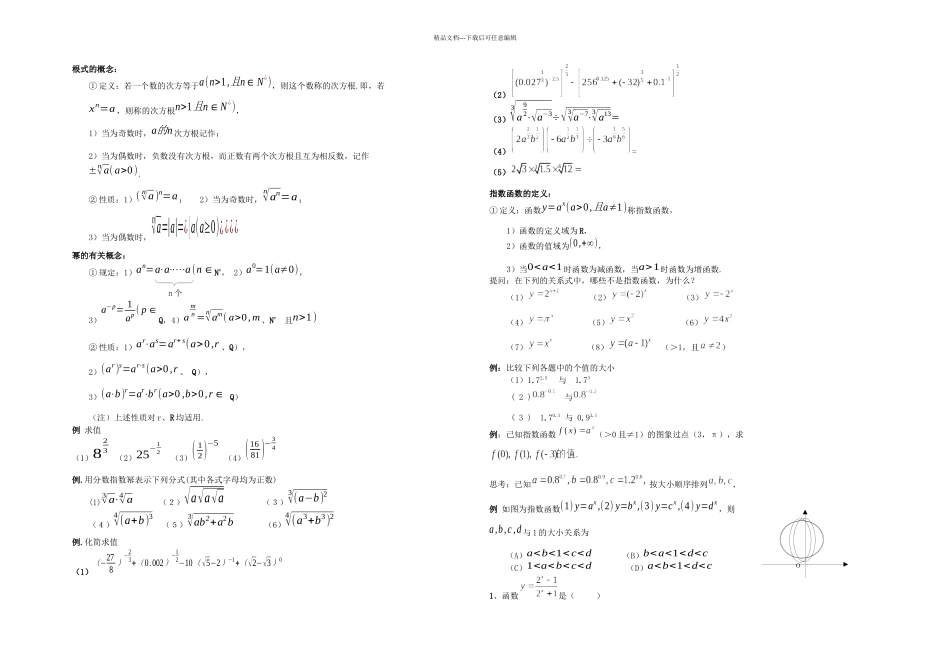 精品文档---下载后可任意编辑
根式的概念：
①定义：若一个数的次方等于a(n>1,且n∈N*)，则这个数称的次方根.即，若
xⁿ=a，则称的次方根n>1且n∈N*)，
1）当为奇数时，a的n次方根记作；
2）当为偶数时，负数没有次方根，而正数有两个次方根且互为相反数，记作
±ⁿ√a(a>0).
②性质：1）(ⁿ√a)ⁿ=a； 2）当为奇数时，ⁿ√aⁿ=a；
3）当为偶数时，ⁿ√a=|a|=¿{a(a≥0)¿¿¿¿
幂的有关概念：
①规定：1）aⁿ=a·a·····a(n∈N*，2）a⁰=1(a≠0)，
n 个
3）a^{-p}=1/a^p(p∈Q，4）a^{m/n}=ⁿ√a^m(a>0,m、N* 且n>1)
②性质：1）a^r·a^s=a^{r+s}(a>0,r、Q），
2）(a^r)^s=a^{r·s}(a>0,r、Q），
3）(a·b)^r=a^r·b^r(a>0,b>0,r∈ Q）
（注）上述性质对 r、R 均适用.
例 求值
（1）8^{2/3} （2）25^{-1/2} （3）(1/2)^{-5} （4）(16/81)^{-3/4}
例.用分数指数幂表示下列分式(其中各式字母均为正数)
(1)³√a·⁴√a （2）√(a√(a√a)) （3）³√(a−b)²
（4）⁴√(a+b)³ （5）³√ab²+a²b （6）⁴√(a³+b³)²
例.化简求值
（1）(−27/8)^{−2/3}+(0.002)^{−1/2}−10(√5−2)^{−1}+(√2−√3)⁰
（2）[(0.027^{1/3})^{-2.5}]^{2/5}−[256^{0.125}+(−32)^{3/5}+0.1^{-1}]^{1/2}
（3）³√a^{9/2}·√a^{−3}÷√³√a^{−7}·³√a^{13}=
（4）(2a^{2/3}b^{1/2})(−6a^{1/2}b^{1/3})÷(−3a^{1/6}b^{5/6})=
（5）2√3×³√1.5×⁶√12=
指数函数的定义：
①定义：函数y=a^x(a>0,且a≠1)称指数函数，
1）函数的定义域为 R，
2）函数的值域为(0,+∞)，
3）当0<a<1时函数为减函数，当a>1时函数为增函数.
提问：在下列的关系式中，哪些不是指数函数，为什么？
（1）y=2^{x+2} （2）y=(-2)^x （3）y=-2^x
（4）y=π^x （5）y=x² （6）y=4x²
（7）y=x^x （8）y=(a-1)^x （>1，且a≠2）
例：比较下列各题中的个值的大小
（1）1.7^{2.5} 与 1.7³
（2）0.8^{-0.1} 与0.8^{-0.2}
（3）1.7^{0.3} 与 0.9^{3.1}
例：已知指数函数f(x)=a^x（>0 且≠1）的图象过点（3，π），求
f(0),f(1),f(-3)的值.
思考：已知a=0.8^{0.7},b=0.8^{0.9},c=1.2^{0.8},按大小顺序排列a,b,c.
例 如图为指数函数(1)y=a^x,(2)y=b^x,(3)y=c^x,(4)y=d^x，则
a,b,c,d与 1 的大小关系为
（A）a<b<1<c<d （B）b<a<1<d<c
（C）1<a<b<c<d （D）a<b<1<d<c
O
1、函数y=(2^x-1)/(2^x+1)是（ ）